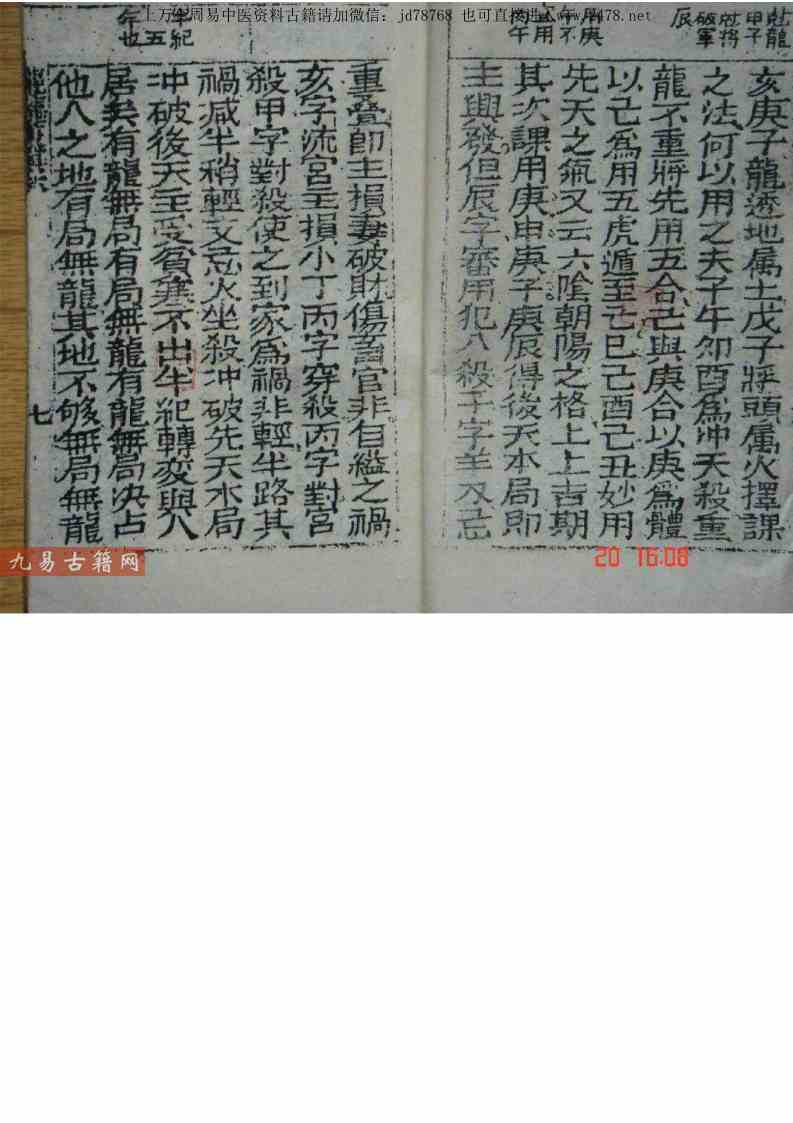 上万本周易中医资料古籍请加微信：jd78768 也可直接进入www.9478.net
龍
甲子
將
破軍
辰
庚
年不
用
午
亥庚子龍透地属土戊子將頭属火擇課
之法何以用之夫子午卯酉爲冲天殺重
龍不重將先用五合己與庚合以庚爲體
以己爲用五虎遁至己巳己酉己丑妙用
先天之氣又云六陰朝陽之格上上吉期
其次課用庚申庚子庚辰得後天本局即
主興發但辰字審用犯八殺子字羊刃忌
半紀
五
年也
重叠即主損妻破財傷畜官非自縊之禍
亥字流宮主損小丁丙字穿殺丙字對宮
殺甲字對殺使之到家爲禍非輕半路其
禍减半稍輕又忌火坐殺冲破先天水局
冲破後天主受貧寒不出半紀轉変與人
居矣有龍無局有局無龍有龍無局决占
他人之地有局無龍其地不够無局無龍
七
九易古籍网
20 16:08